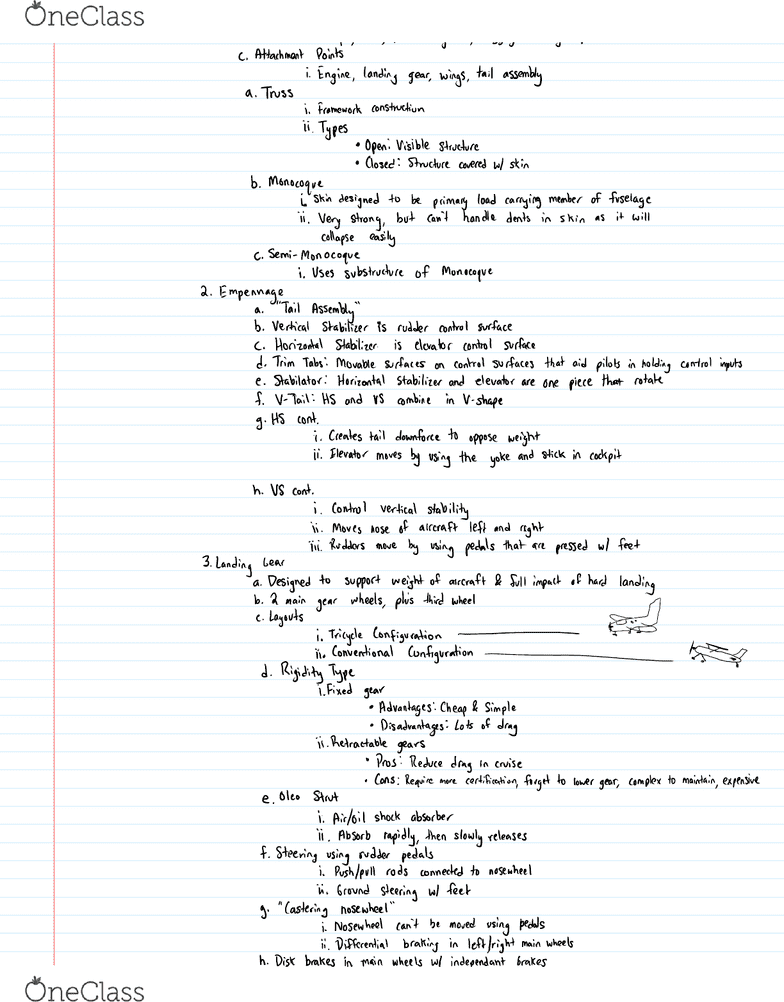 OneClass
c. Attachment Points
i. Engine, landing gear, wings, tail assembly
a. Truss
i. Framework construction
ii. Types
• Open: Visible structure
• Closed: Structure covered w/ skin
b. Monocoque
i. Skin designed to be primary load carrying member of fuselage
ii. Very strong, but can't handle dents in skin as it will
collapse easily
c. Semi-Monocoque
i. Uses substructure of Monocoque
2. Empennage
a. "Tail Assembly"
b. Vertical Stabilizer is rudder control surface
c. Horizontal Stabilizer is elevator control surface
d. Trim Tabs: Movable surfaces on control surfaces that aid pilots in holding control inputs
e. Stabilator: Horizontal Stabilizer and elevator are one piece that rotate
f. V-Tail: HS and VS combine in V-shape
g. HS cont.
i. Creates tail downforce to oppose weight
ii. Elevator moves by using the yoke and stick in cockpit
h. VS cont.
i. Control vertical stability
ii. Moves nose of aircraft left and right
iii. Rudders move by using pedals that are pressed w/ feet
3. Landing Gear
a. Designed to support weight of aircraft & full impact of hard landing
b. 2 main gear wheels, plus third wheel
c. Layouts
i. Tricycle Configuration
ii. Conventional Configuration
d. Rigidity Type
i. Fixed gear
• Advantages: Cheap & Simple
• Disadvantages: Lots of drag
ii. Retractable gears
• Pros: Reduce drag in cruise
• Cons: Require more certification, forget to lower gear, complex to maintain, expensive
e. Oleo Strut
i. Air/oil shock absorber
ii. Absorb rapidly, then slowly releases
f. Steering using rudder pedals
i. Push/pull rods connected to nosewheel
ii. Ground steering w/ feet
g. "Castering nosewheel"
i. Nosewheel can't be moved using pedals
ii. Differential braking in left/right main wheels
h. Disk brakes in main wheels w/ independant brakes
OneClass